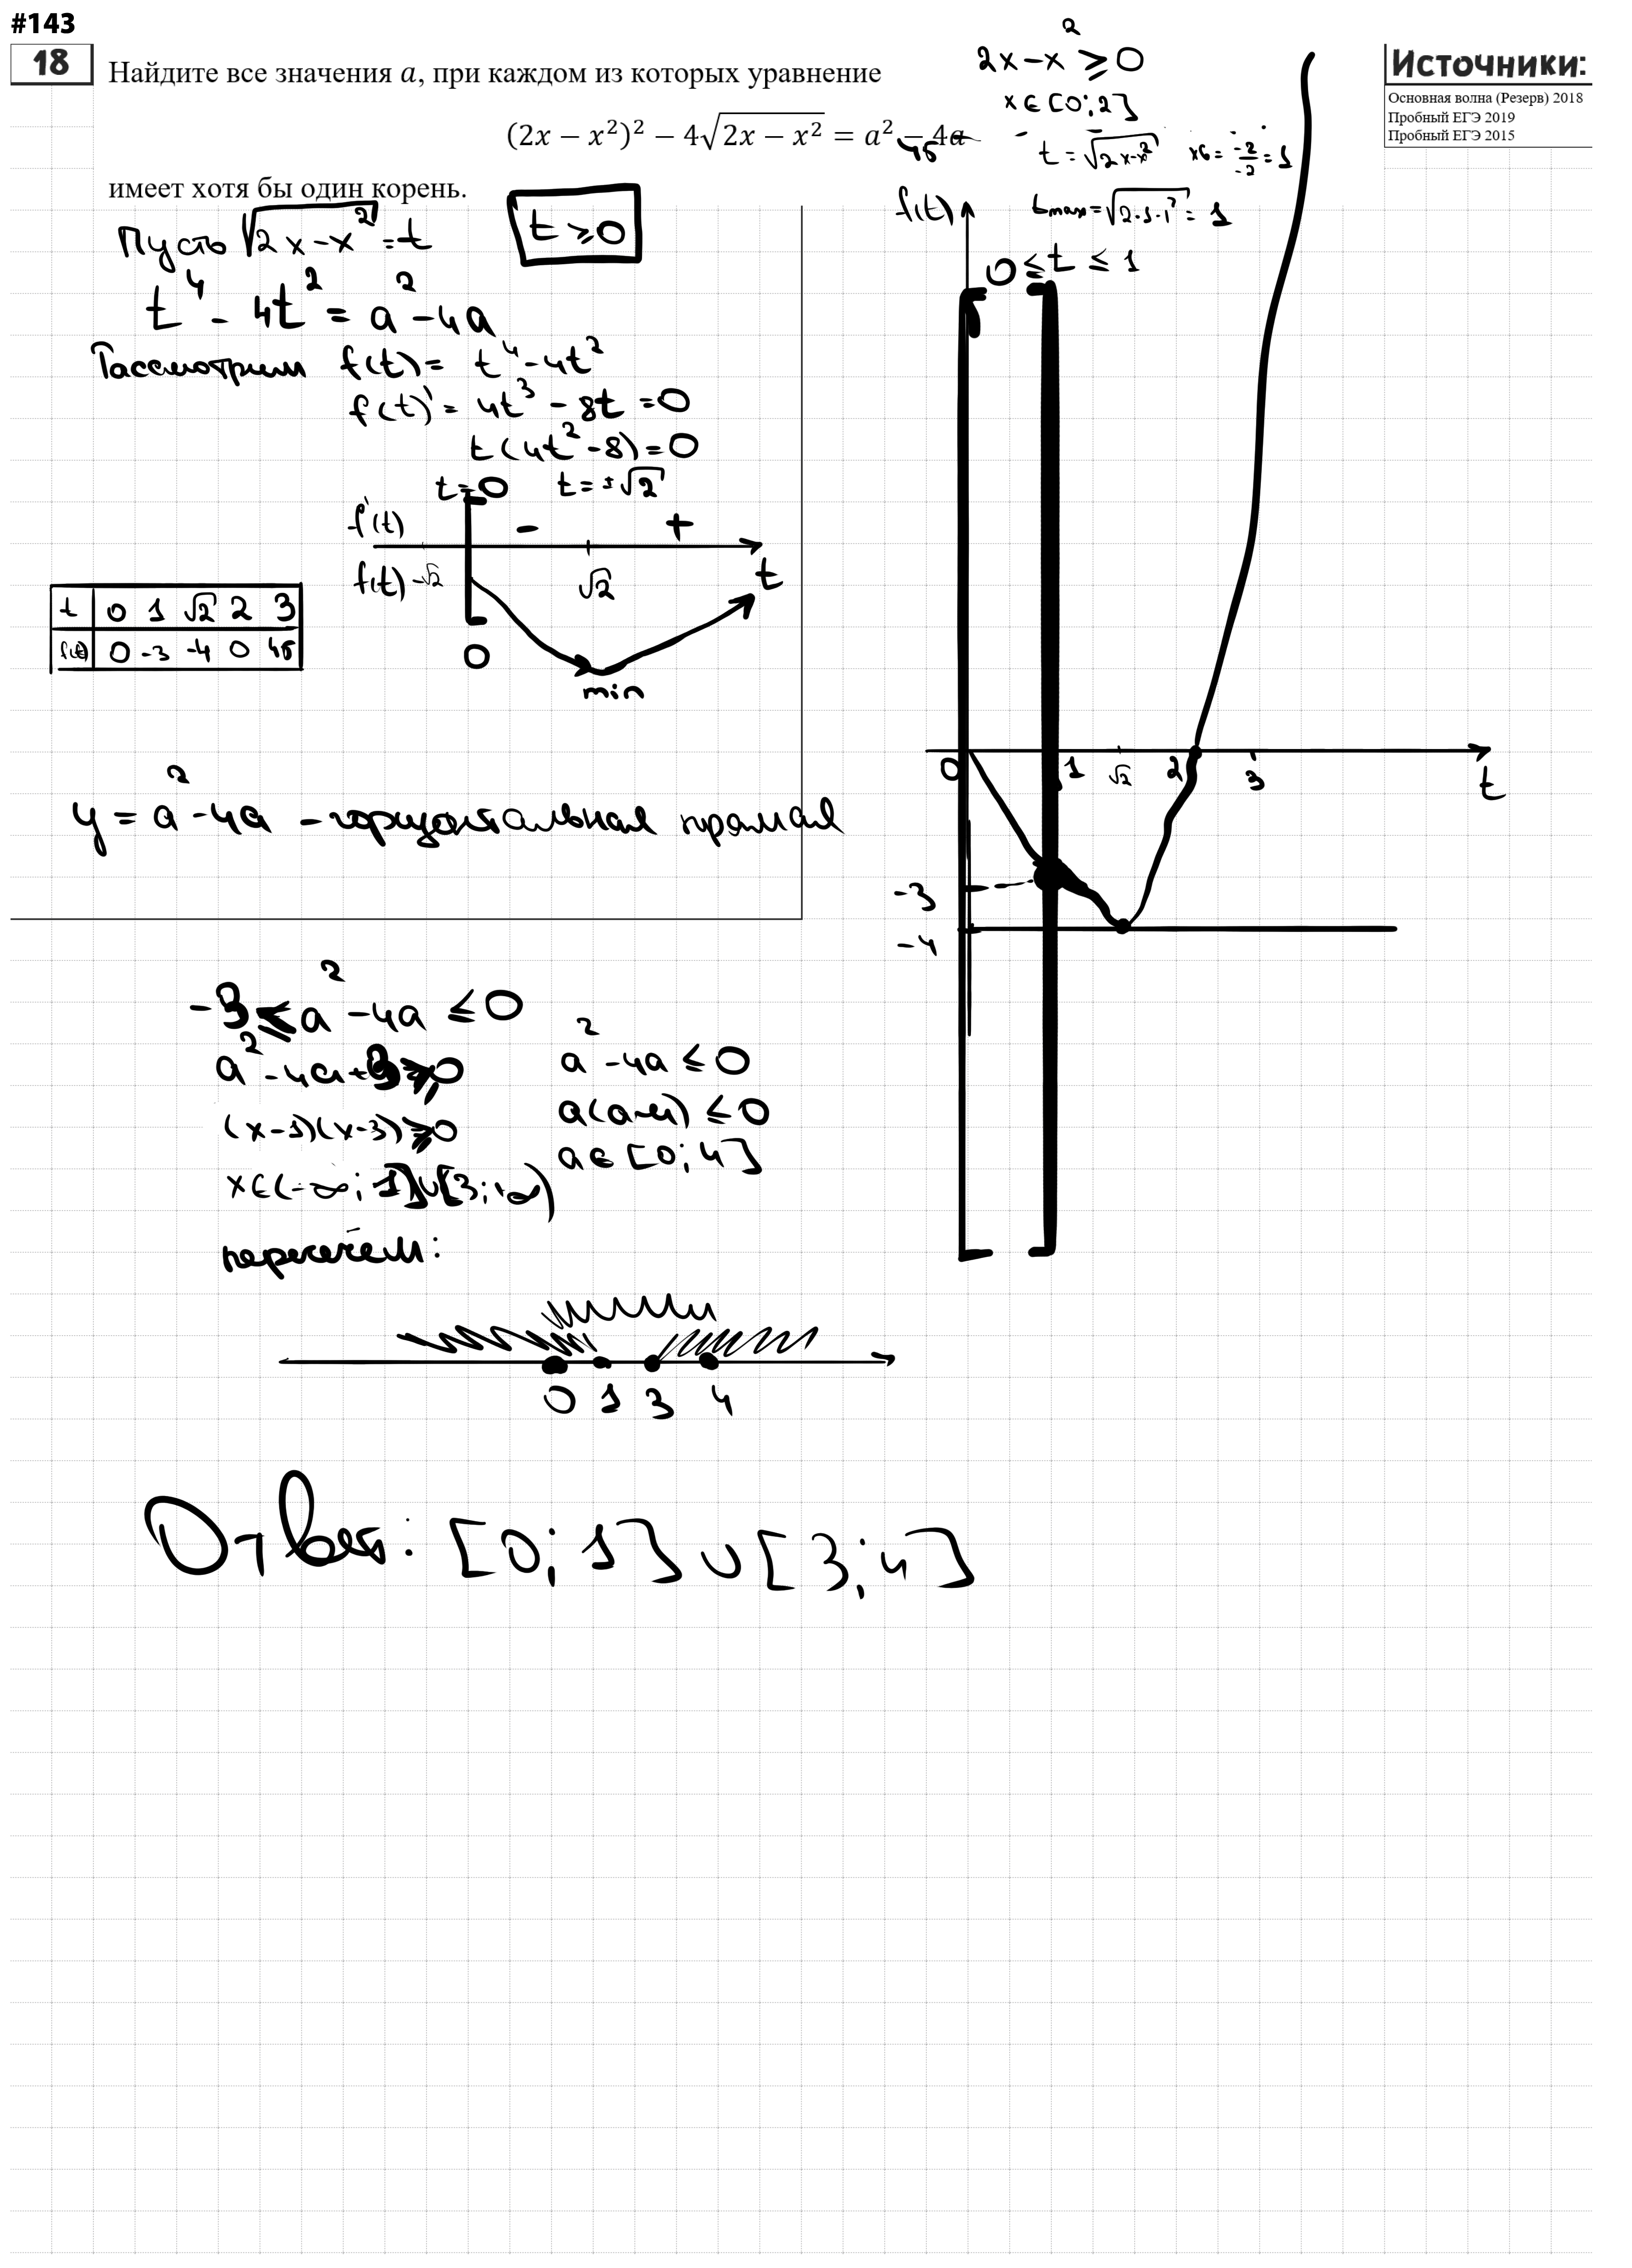 #143
18
Найдите все значения a, при каждом из которых уравнение
(2x − x²)² − 4√(2x − x²) = a² − 4a
имеет хотя бы один корень.
Источники:
Основная волна (Резерв) 2018
Пробный ЕГЭ 2019
Пробный ЕГЭ 2015
Пусть √(2x−x²) = t
t ⩾ 0
t⁴ − 4t² = a² − 4a
Рассмотрим f(t) = t⁴ − 4t²
f(t)' = 4t³ − 8t = 0
t(4t² − 8) = 0
t = 0 t = ±√2
f'(t) − +
f(t) −√2 0 √2 t
min
t 0 1 √2 2 3
f(t) 0 −3 −4 0 45
y = a² − 4a − горизонтальная прямая
2x − x² ⩾ 0
x ∈ [0; 2]
t = √(2x−x²) xв = −2/−2 = 1
tmax = √(2·1−1²) = 1
0 ≤ t ≤ 1
45
f(t)
0 1 √2 2 3 t
−3
−4
−3 ≤ a² − 4a ≤ 0
a² − 4a + 3 ⩾ 0
(x−1)(x−3) ⩾ 0
x ∈ (−∞; 1] ∪ [3; +∞)
a² − 4a ≤ 0
a(a−4) ≤ 0
a ∈ [0; 4]
пересечем:
0 1 3 4
Ответ: [0; 1] ∪ [3; 4]